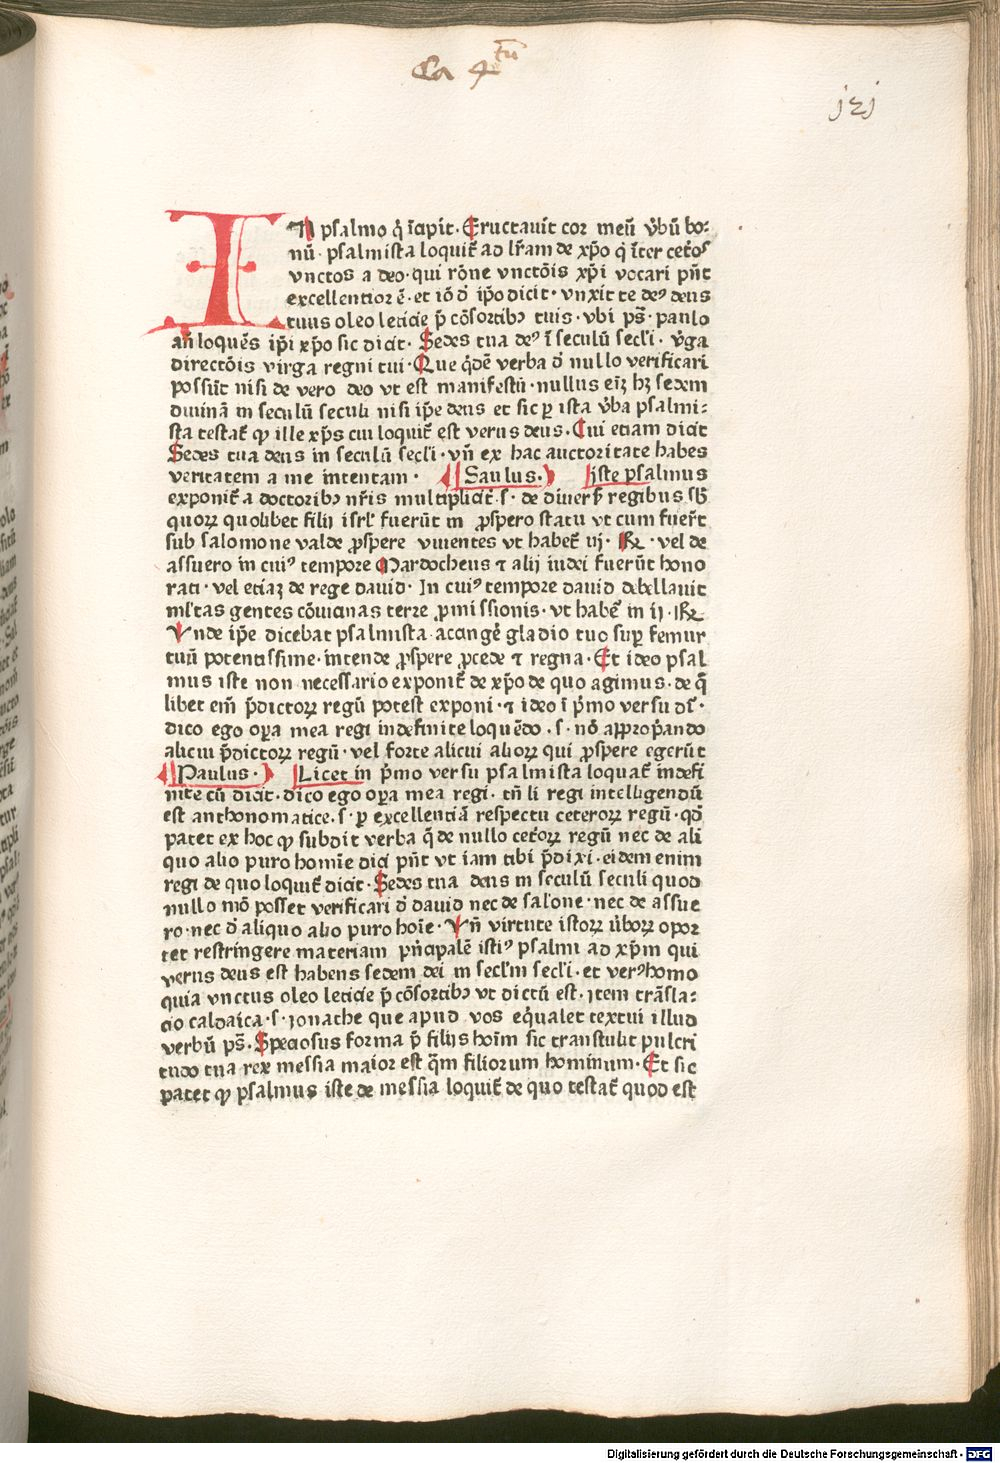 Ca 4tū
jzj
IN psalmo q̇ īcipit. Eructauit cor meū v̇bū bo⸗
nū. psalmista loquit̄ ad lr̄am de xp̄o q̇ īter cet̄os
vnctos a deo. qui rōne vnctōis xp̄i vocari pn̄t
excellentior ē. et iō d̄ ip̄o dicit. vnxit te deꝰ deus
tuus oleo leticie p̄ cōsortibꝫ tuis. vbi ps̄. paulo
an̄ loquēs ip̄i xp̄o sic dicit. Sedes tua deꝰ ī seculū secl̄i. v̇ga
directōis virga regni tui. Que q̇dē verba d̄ nullo verificari
possūt nisi de vero deo vt est manifestū. nullus eīꝫ hꝫ sedem
diuinā in seculū seculi nisi ip̄e deus et sic ꝑ ista v̇ba psalmi⸗
sta testat̄ ꝙ ille xp̄s cui loquit̄ est verus deus. Cui etiam dicit
Sedes tua deus in seculū secl̄i. vn̄ ex hac auctoritate habes
veritatem a me intentam. Saulus. Iste psalmus
exponit̄ a doctoribꝫ nr̄is multiplicit̄. s. de diuers̄ regibus sb̄
quoꝝ quolibet filij isrl̄ fuerūt in ꝓspero statu vt cum fuer̄t
sub salomone valde ꝓspere viuentes vt habet̄ iij. R. vel de
assuero in cuiꝰ tempore Mardocheus ⁊ alij iudei fuerūt hono
rati. vel etiaꝫ de rege dauid. In cuiꝰ tempore dauid debellauit
ml̄tas gentes cōuicinas terre ꝓmissionis. vt habet̄ in ij. R
Vnde ip̄e dicebat psalmista accinge gladio tuo suꝑ femur
tuū potentissime. intende ꝓspere ꝓcede ⁊ regna. Et ideo psal
mus iste non necessario exponit̄ de xp̄o de quo agimus. de q̄
libet em̄ p̄dictoꝝ regū potest exponi. ⁊ ideo ī ṗmo versu dī.
dico ego oꝑa mea regi indefinite loquēdo. s. nō appropṙando
alicui p̄dictoꝝ regū. vel forte alicui alioꝝ qui ꝓspere egerūt
Paulus. Licet in ṗmo versu psalmista loquat̄ indefi
nite cū dicit. dico ego oꝑa mea regi. tn̄ li regi intelligendū
est anthonomatice. s. ꝑ excellentiā respectu ceteroꝝ regū. qd̄
patet ex hoc ꝙ subdit verba q̄ de nullo cet̄oꝝ regū nec de ali
quo alio puro homīe dici pn̄t vt iam tibi p̄dixi. eidem enim
regi de quo loquit̄ dicit. Sedes tua deus in seculū seculi quod
nullo mō posset verificari d̄ dauid nec de sal̄one. nec de assue
ro. nec d̄ aliquo alio puro hoīe. Vn̄ virtute istoꝝ v̇boꝝ opor
tet restringere materiam pn̄cipalē istiꝰ psalmi ad xp̄m qui
verus deus est habens sedem dei in secl̄m secl̄i. et verꝰ homo
quia vnctus oleo leticie p̄ cōsortibꝫ vt dictū est. Item trāsla⸗
cio caldaica. s. Jonathe que apud vos eq̇ualet textui illud
verbū ps̄. Speciosus forma p̄ filijs hoīm sic transtulit pulcri
tudo tua rex messia maior est q̄m filiorum hominum. Et sic
patet ꝙ psalmus iste de messia loquit̄ de quo testat̄ quod est
Digitalisierung gefördert durch die Deutsche Forschungsgemeinschaft - DFG